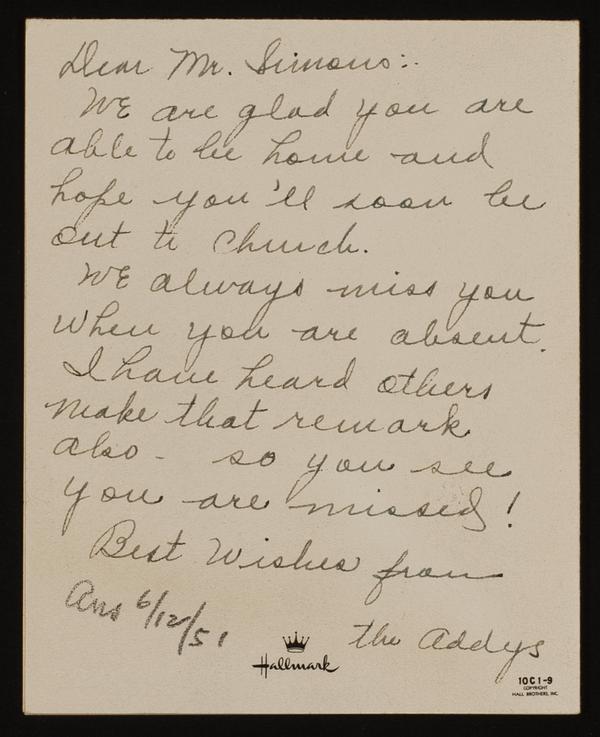 Dear Mr. Simons:
WE are glad you are
able to be home and
hope you'll soon be
out to church.
WE always miss you
when you are absent.
I have heard others
make that remark
also - so you see
you are missed!
Best Wishes from
the Addys
Ans 6/12/51
Hallmark
10C1-9
COPYRIGHT
HALL BROTHERS, INC.